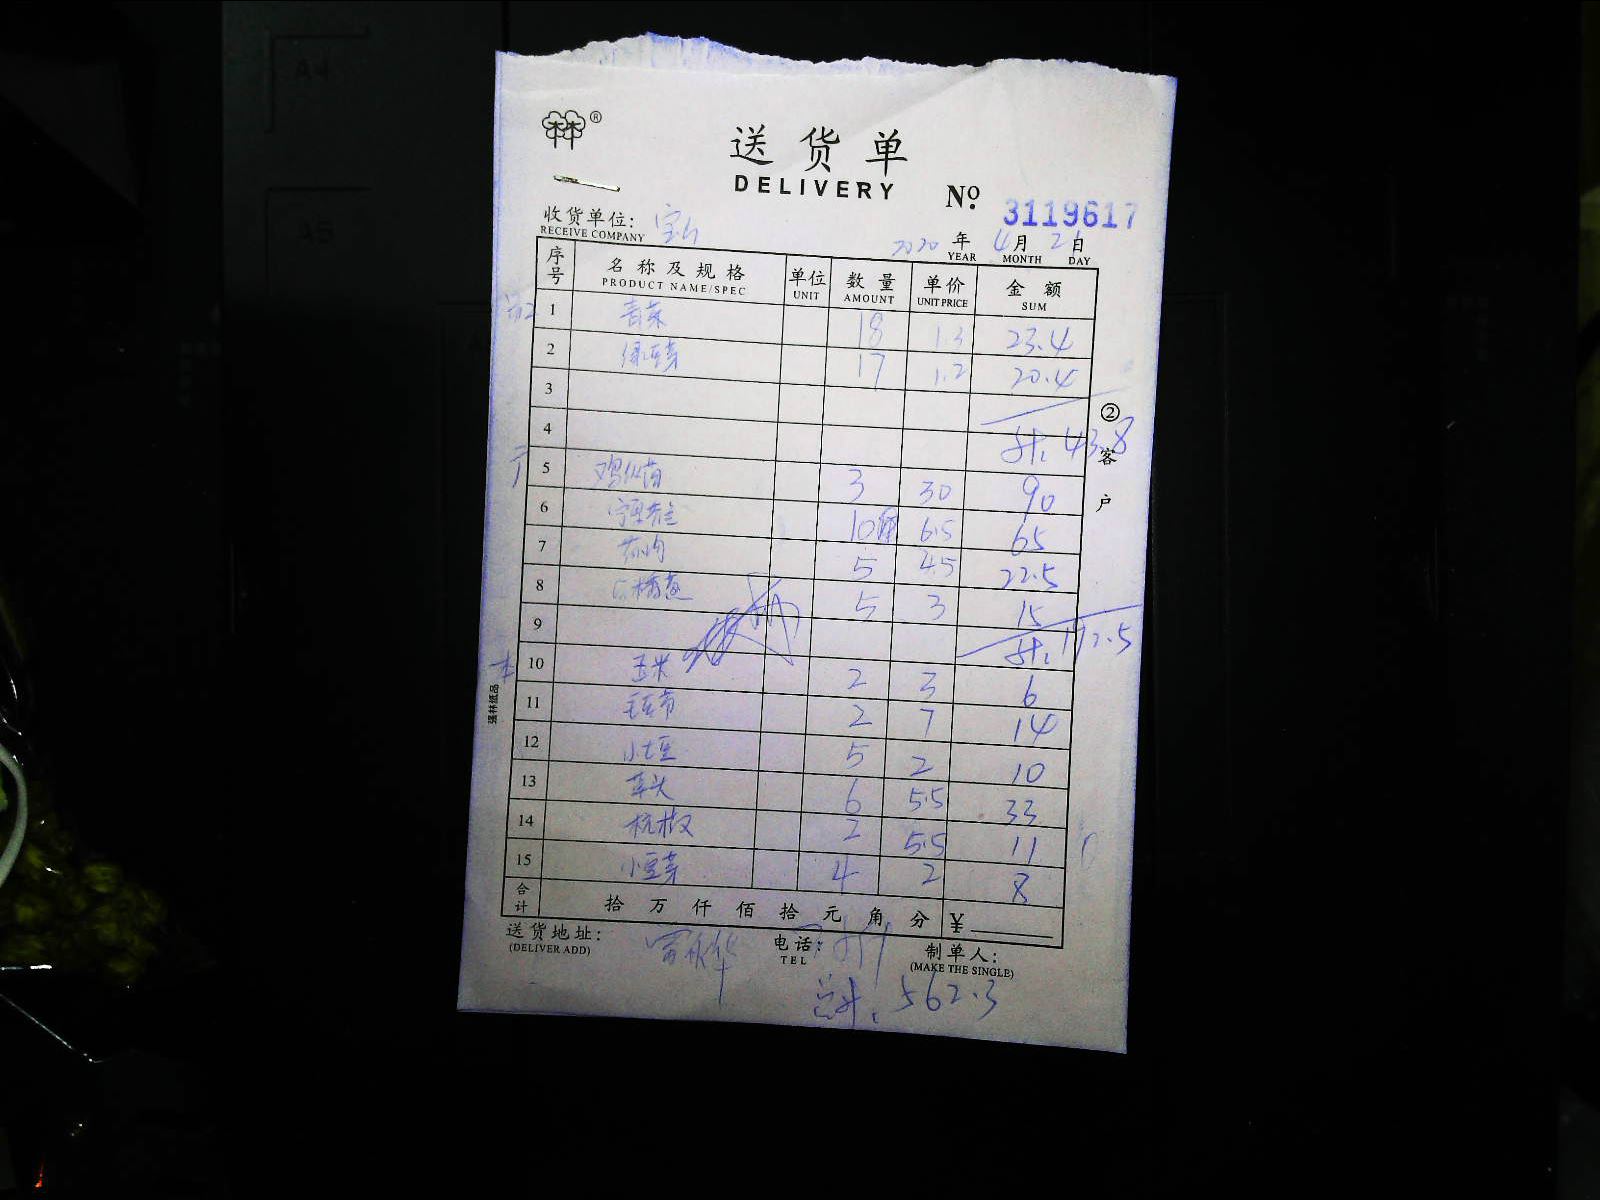 A4
A5
林®
送货单
DELIVERY
№ 3119617
收货单位:
RECEIVE COMPANY
2020 年 4 月 2 日
YEAR MONTH DAY
序号 名称及规格 单位 数量 单价 金额
PRODUCT NAME/SPEC UNIT AMOUNT UNIT PRICE SUM
1 青菜 18 1.3 23.4
2 绿豆芽 17 1.2 20.4
3
4 计: 43.8
5 3 30 90
6 10 6.5 65
7 5 4.5 22.5
8 5 3 15
9 计: 192.5
10 玉米 2 3 6
11 毛豆节 2 7 14
12 小土豆 5 2 10
13 草头 6 5.5 33
14 杭椒 2 5.5 11
15 小豆芽 4 2 8
合计 拾 万 仟 佰 拾 元 角 分 ¥
②客户
强林纸品
送货地址:
(DELIVER ADD)
电话:
TEL
制单人:
(MAKE THE SINGLE)
总计: 562.3